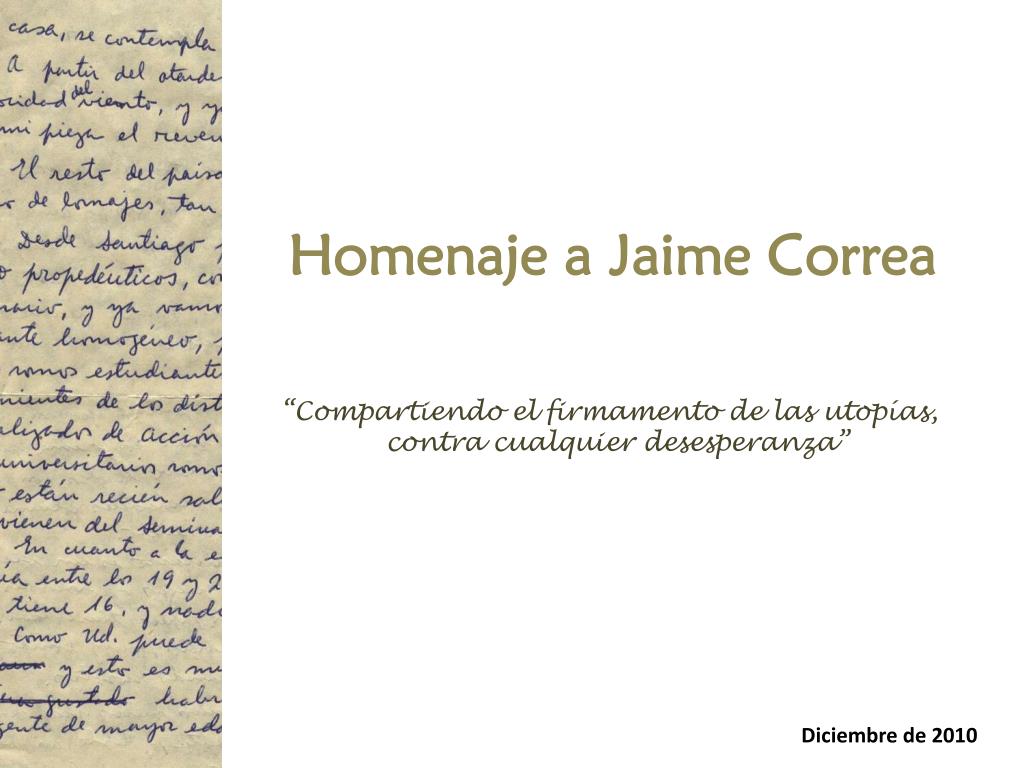 casa, se contempla
A partir del atarde
ocidad del viento, y y
mi pieza el reven
El resto del paisa
o de lomajes, tan
Desde Santiago
o propedéuticos, co
nario, y ya vamo
ante homogéneo,
somos estudiante
mientos de los dist
alizador de Acción
universitarios somo
están recién sal
vienen del semina
En cuanto a la e
ía entre los 19 y 2
tiene 16, y nada
Como Ud. puede
y esto es mu
gustado habr
gente de mayor eda
Homenaje a Jaime Correa
“Compartiendo el firmamento de las utopías,
contra cualquier desesperanza”
Diciembre de 2010